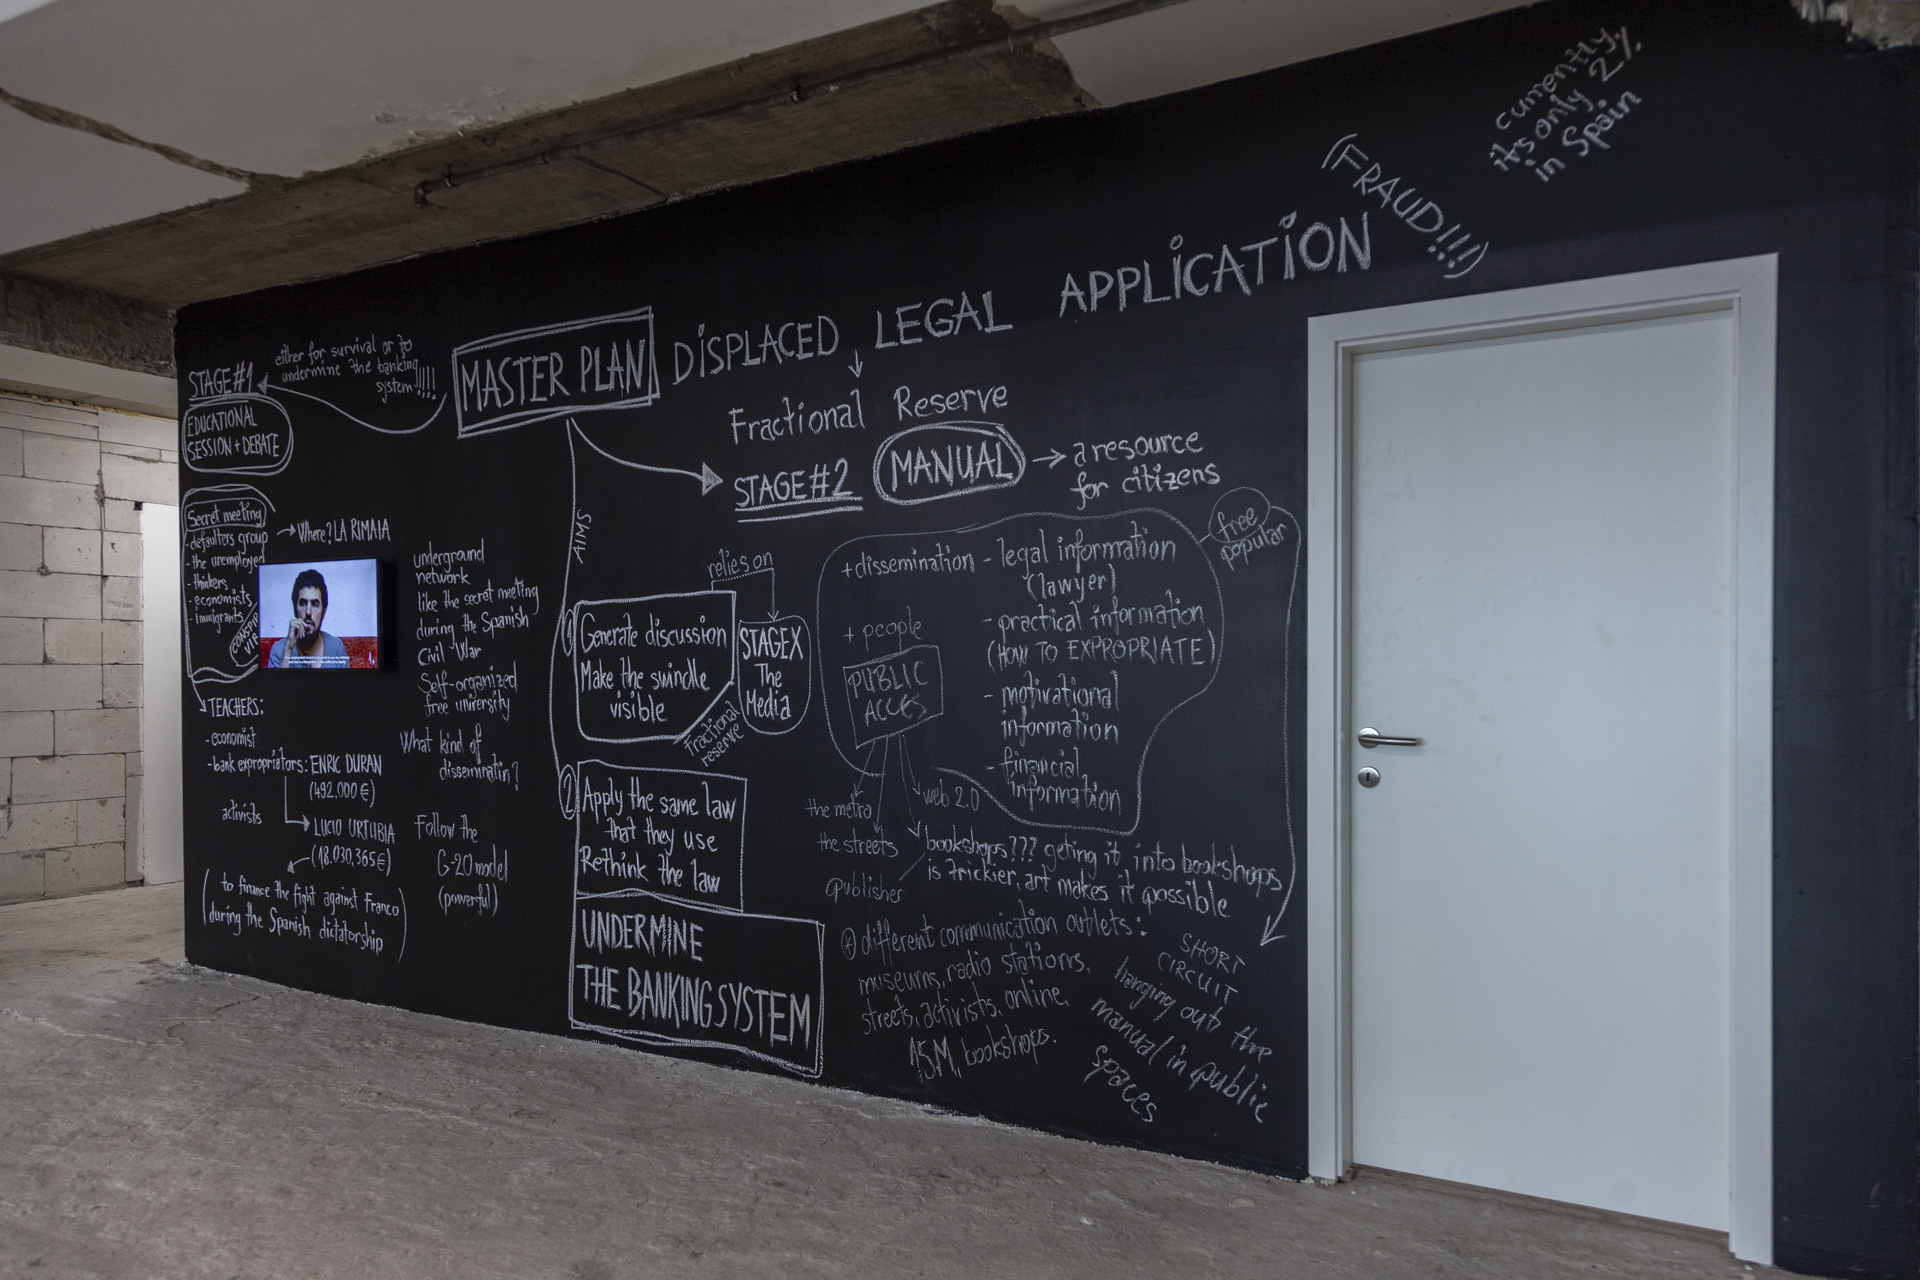 currently
it's only 2%
in Spain
(FRAUD!!!)
MASTER PLAN
DISPLACED LEGAL APPLICATION
Fractional Reserve
STAGE #1
either for survival or to
undermine the banking
system!!!!
EDUCATIONAL
SESSION + DEBATE
Secret meeting
- defaulters group
- the unemployed
- thinkers
- economists
- immigrants
Where? LA RIMAIA
underground
network
like the secret meeting
during the Spanish
Civil War
Self-organized
free university
What kind of
disseminatin?
Follow the
G-20 model
(powerful)
TEACHERS:
- economist
- bank expropriators: ENRIC DURAN
(492,000 €)
activists
LUCIO URTUBIA
(18.030,365€)
(to finance the fight against Franco
during the Spanish dictatorship)
AIMS
1
Generate discussion
Make the swindle
visible
relies on
STAGE X
The
Media
Fractional
reserve
2
Apply the same law
that they use
Rethink the law
UNDERMINE
THE BANKING SYSTEM
STAGE #2
MANUAL
a resource
for citizens
free
popular
+ dissemination
- legal information
(lawyer)
- practical information
(HOW TO EXPROPRIATE)
- motivational
information
- financial
information
+ people
PUBLIC
ACCES
the metro
the streets
web 2.0
bookshops??? geting it into bookshops
is trickier, art makes it possible
publisher
different communication outlets:
museums, radio stations,
streets, activists, online,
15M, bookshops.
SHORT
CIRCUIT
hanging out the
manual in public
spaces